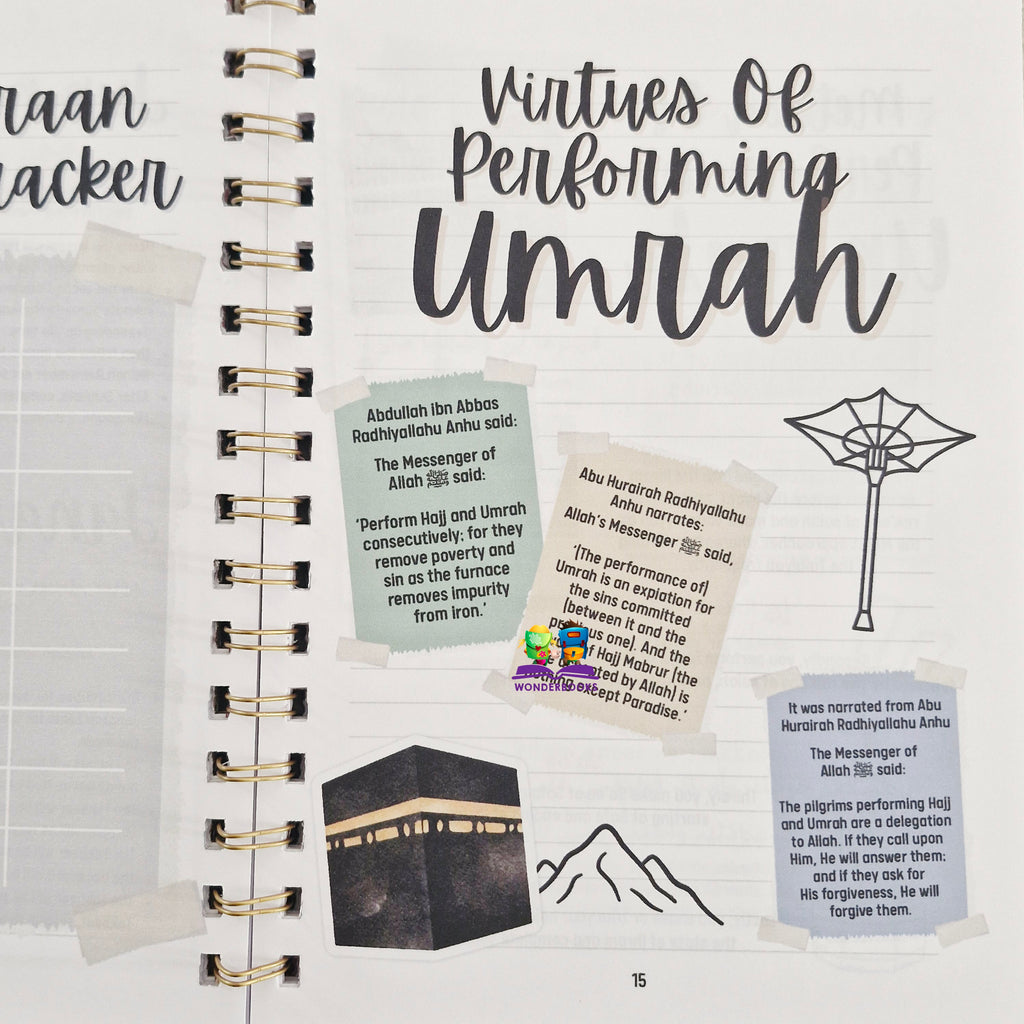 raan
racker
Virtues Of
Performing
Umrah
Abdullah ibn Abbas
Radhiyallahu Anhu said:
The Messenger of
Allah ﷺ said:
‘Perform Hajj and Umrah
consecutively; for they
remove poverty and
sin as the furnace
removes impurity
from iron.’
Abu Hurairah Radhiyallahu
Anhu narrates:
Allah’s Messenger ﷺ said,
‘[The performance of]
Umrah is an expiation for
the sins committed
[between it and the
one]. And the
of Hajj Mabrur [the
by Allah] is
nothing except Paradise.’
WONDERBOOKS
It was narrated from Abu
Hurairah Radhiyallahu Anhu
The Messenger of
Allah ﷺ said:
The pilgrims performing Hajj
and Umrah are a delegation
to Allah. If they call upon
Him, He will answer them:
and if they ask for
His forgiveness, He will
forgive them.
15